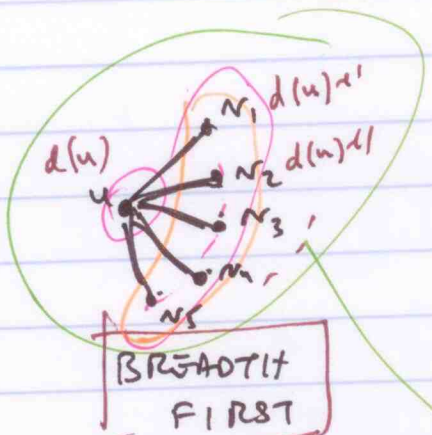 d(u)
u
v₁ d(u)+1
v₂ d(u)+1
v₃
v₄
v₅
BREADTH
FIRST